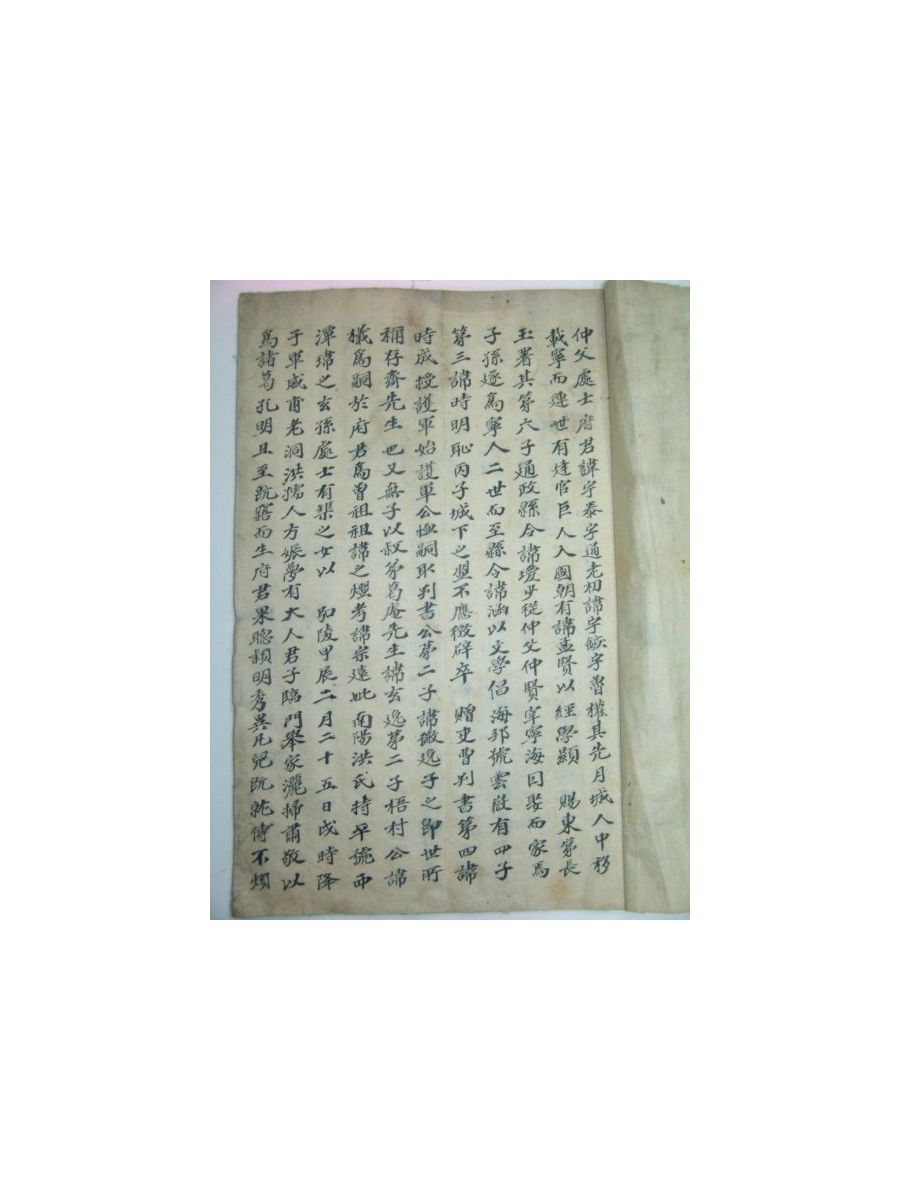 仲父處士府君諱宇泰字通老初諱宇鉉字魯權其先月城人中移
載寧而連世有達官巨人入國朝有諱孟賢以經學顯 賜東第長
玉署其第六子通政縣令諱璦少從仲父仲賢宰寧海因娶而家焉
子孫遂爲寧人二世而至縣令諱涵以文學倡海邦號雲嶽有四子
第三諱時明恥丙子城下之盟不應徵辟卒 贈吏曹判書第四諱
時成授護軍始護軍公無嗣取判書公第二子諱徽逸子之卽世所
稱存齋先生也又無子以叔弟葛庵先生諱玄逸第二子梧村公諱
檥爲嗣於府君爲曾祖祖諱之煜考諱宗遠妣南陽洪氏特平號西
潭瑋之玄孫處士有榘之女以 劢陵甲辰二月二十五日戌時降
于軍威甫老洞洪孺人方娠夢有大人君子臨門擧家灑掃肅敬以
爲諸葛孔明且至旣寤而生府君果聰穎明秀異凡兒旣就傅不煩